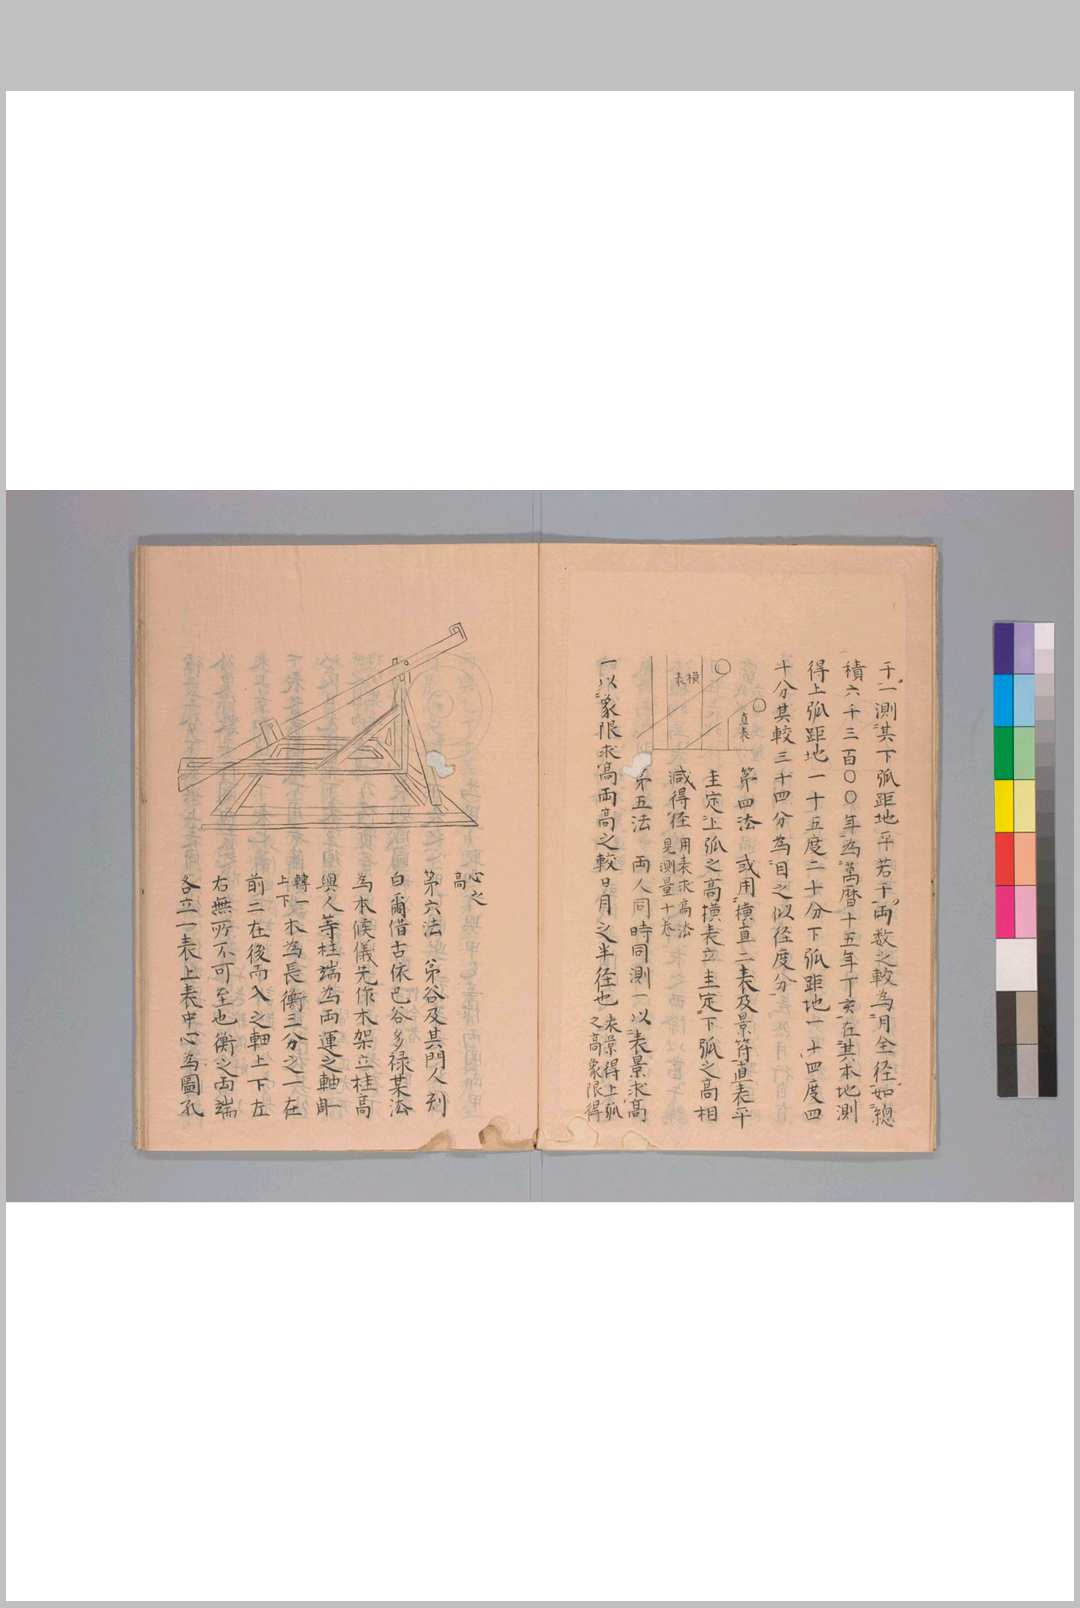 干一測其下弧距地平若干両数之較為月全径如總
積六千三百〇〇年為萬暦十五年丁亥在其本地測
得上弧距地一十五度二十分下弧距地一十四度四
十分其較三十四分為目之似径度分
第四法 或用横直二表及景符直表平
主定上弧之高横表立主定下弧之高相
減得径 用表求高法
見測量十巻
直表
横表
第五法 両人同時同測一以表景求高
一以象限求高両高之較日月之半径也 表景得上弧
之高象限得
心之
高
第六法 苐谷及其門人刻
白爾借古依巴谷多禄某法
為木候儀先作木架立柱高
與人等柱端為両運之軸𠕋
轉一
上下
木為長衡三分之一在
前二在後而入之軸上下左
右無所不可至也衡之両端
各立一表上表中心為圓孔